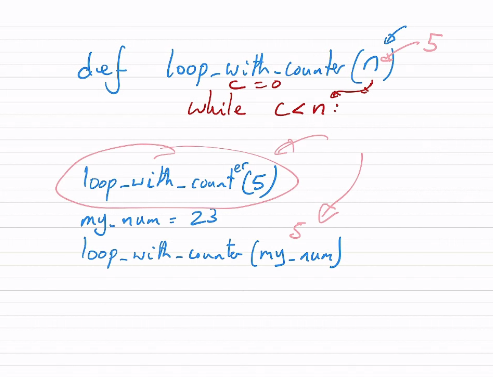 def loop_with_counter(n) 5
c = 0
while c < n :
loop_with_counter(5)
my_num = 23
5
loop_with_counter(my_num)